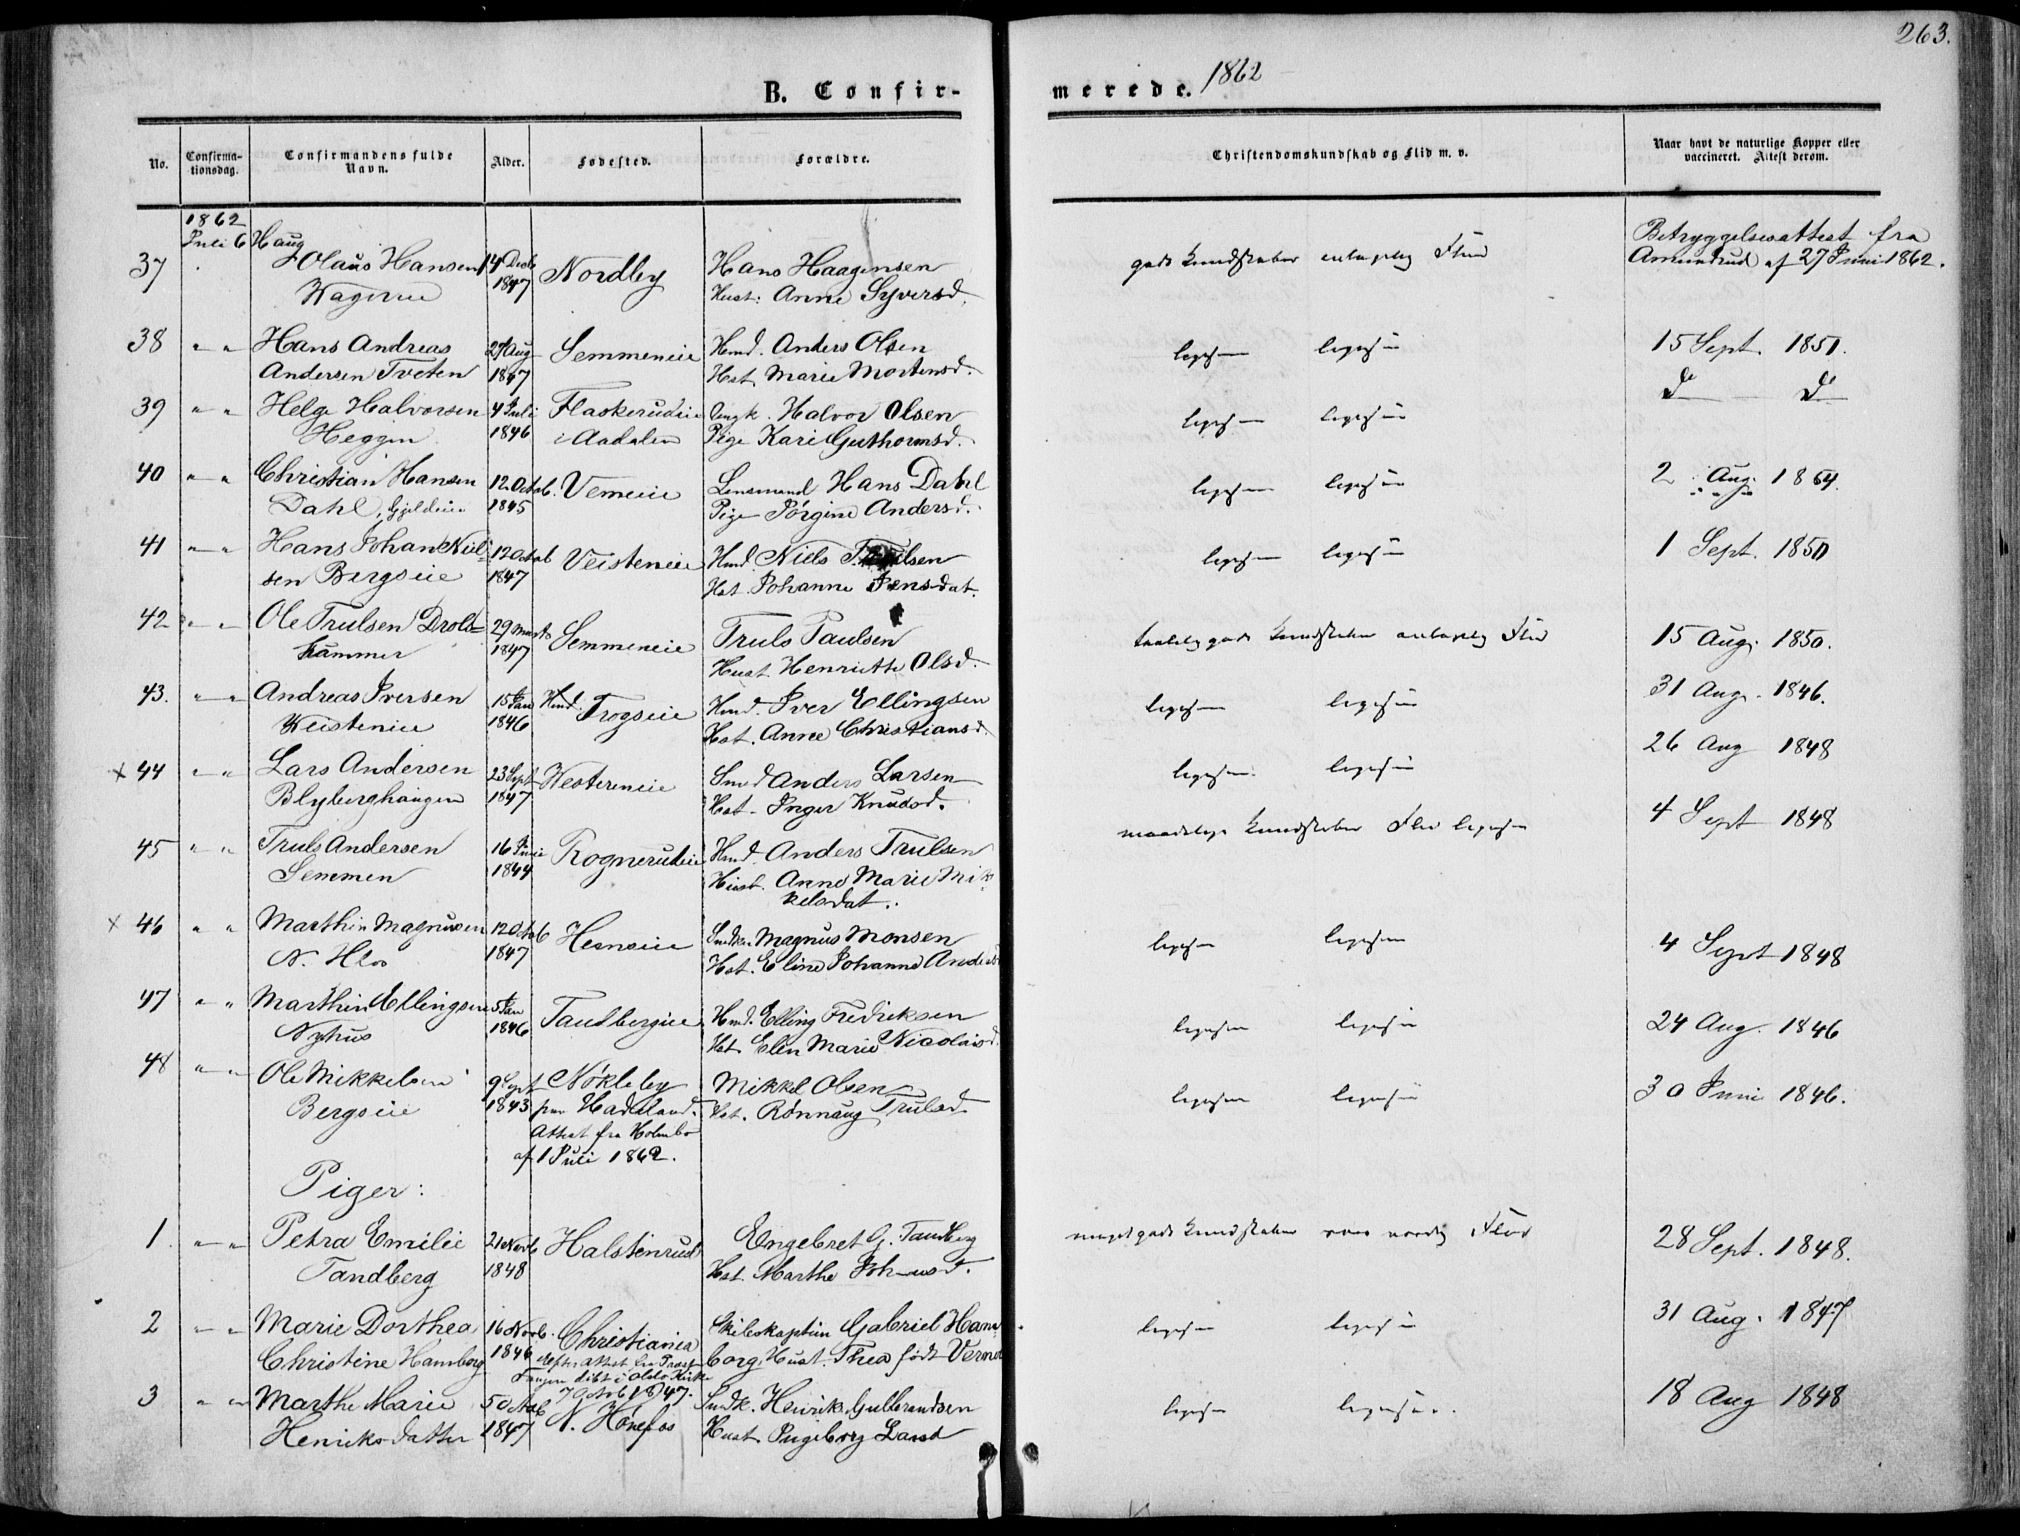 263.
B. Confir-
merede. 1862
No.
Confirma-
tionsdag.
Confirmandens fulde
Navn.
Alder.
Fødested.
Forældre.
Christendomskundskab og Flid m. v.
Naar havt de naturlige Kopper eller
vaccineret. Attest derom.
1862
Juli 6 Haug
37 Olaus Hansen 14 Decb Nordby Hans Haagensen gode Kundskaber Flid
1847 Hust: Anne Syversd.
Betryggelsesattest fra
af 27 Juni 1862.
38 " " Hans Andreas 27 Aug Semmeneie Hmd. Anders Olsen ligesaa ligesaa 15 Sept. 1851.
Andersen Tveten 1847 Hst. Marie Mortensd.
39 " " Helge Halvorsen 4 Juli Flaskerudeie Ungk. Halvor Olsen ligesaa ligesaa Do Do
Heggen 1846 i Aadalen Pige Kari Guthormsd.
40 " " Christian Hansen 12 Octob. Vemeie Lensmand Hans Dahl ligesaa ligesaa 2 Aug. 1864.
Dahl, 1845 Pige Jørgine Andersd.
41 " " Hans Johan Niel- 12 Octob Veisteneie Hmd. Niels ligesaa ligesaa 1 Sept. 1850
sen Bergseie 1847 Hst. Johanne Jensdat.
42 " " Ole Trulsen Drols- 29 Marts Semmeneie Truls Paulsen gode Kundskaber Flid 15 Aug. 1850.
hammer 1847 Hust. Henriette Olsd.
43. " " Andreas Iversen 15 Jan Hmd. Frogseie Hmd. Iver Ellingsen ligesaa ligesaa 31 Aug. 1846.
Veisteneie 1846 Hst. Anne Christiansd.
x 44 " " Lars Andersen 23 Sept Vestereneie Smed Anders Larsen ligesaa ligesaa 26 Aug 1848
Blyberghaugen 1847 Hst. Inger Knudsd.
45 " " Truls Andersen 16 Rognerudeie Hmd. Anders Trulsen maadelige Kundskaber Flid ligesaa 4 Sept 1848
Semmen 1844 Hust. Anne Marie Mik-
kelsdat.
x 46 " " Marthin Magnussen 12 Octob Hensеie Magnus Monsen ligesaa ligesaa 4 Sept 1848
N. 1847 Hst. Eline Johanne
47 " " Marthin Ellingsen 5 Jan Tandbergeie Hmd. Elling Fredriksen ligesaa ligesaa 24 Aug. 1846
Nyhus 1846 Hst. Elen Marie Nicolaisd.
48 " " Ole Mikkelsen 9 Sept Nøkleby Mikkel Olsen ligesaa ligesaa 30 Juni 1846.
Bergseie 1843 paa Hadeland. Hst. Rønnaug Trulsd.
Attest fra Holmbo
af 1 Juli 1862.
Piger:
1. " " Petra Emilie 21 Novb Halstenrud Engebret G. Tandberg meget gode Kundskaber Flid 28 Sept. 1848.
Tandberg 1848 Hst. Marthe
2 " " Marie Dorthea 16 Novb. Christiania Gabriel Ham- ligesaa ligesaa 31 Aug. 1847
Christine Hamborg 1846 efter Attest fra borg, Hust. Thea født
døbt i Oslo Kirke
7 Octob 1847.
3 " " Marthe Marie 5 Octob N. Hønefos Henrik Gulbrandsen ligesaa ligesaa. 18 Aug 1848
Henriksdatter 1847 Hust. Ingeborg